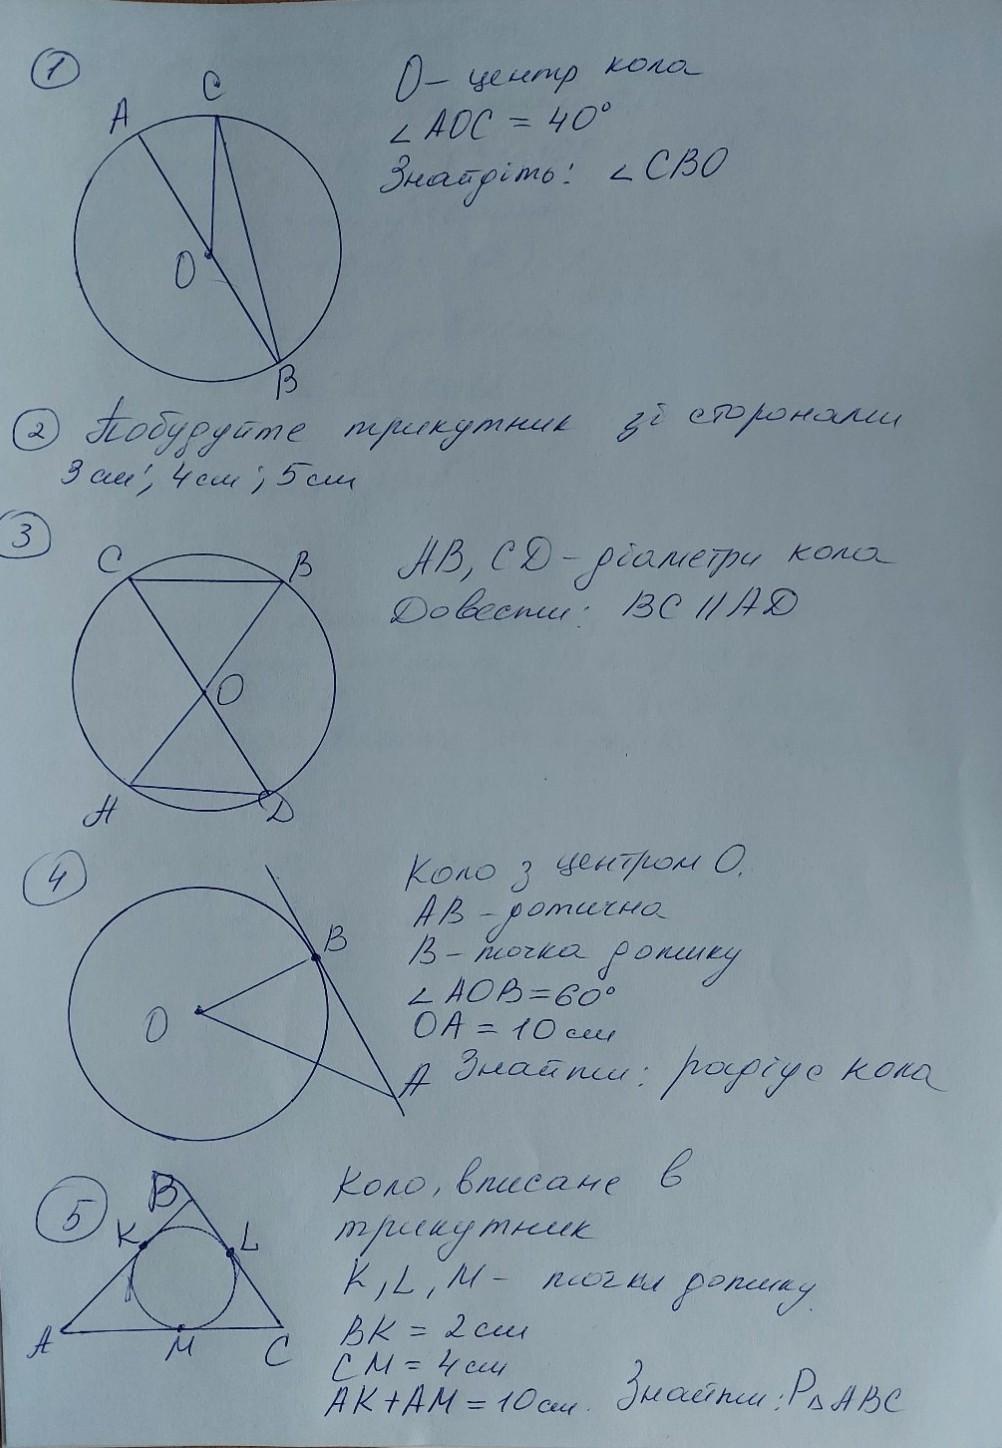 1
O - центр кола
∠AOC = 40°
Знайдіть: ∠CBO
A
C
O
B
2 Побудуйте трикутник зі сторонами
3 см; 4 см; 5 см
3
C
B
O
A
D
AB, CD - діаметри кола
Довести: BC || AD
4
Коло з центром O.
AB - дотична
B - точка дотику
∠AOB = 60°
OA = 10 см
Знайти: радіус кола
B
O
A
5
Коло, вписане в
трикутник
K, L, M - точки дотику
BK = 2 см
CM = 4 см
AK + AM = 10 см. Знайти: P△ABC
B
K
L
A
M
C